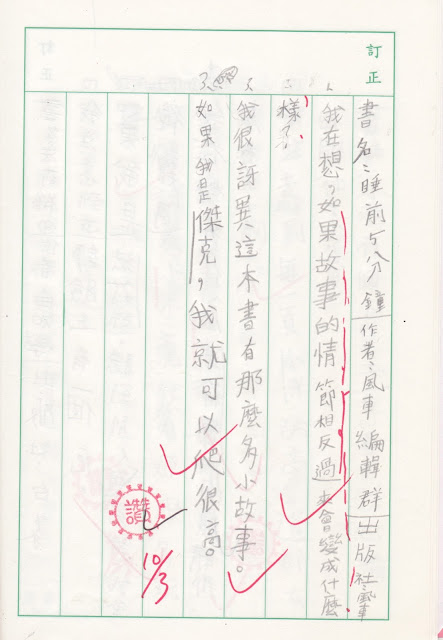 訂正
書名:睡前5分鐘 作者:風車編輯群 出版社:風車
我在想,如果故事的情節相反過來會變成什麼
樣子?
我很訝異這本書有那麼多小故事。
如果我是傑克,我就可以爬很高。
讚
10/3